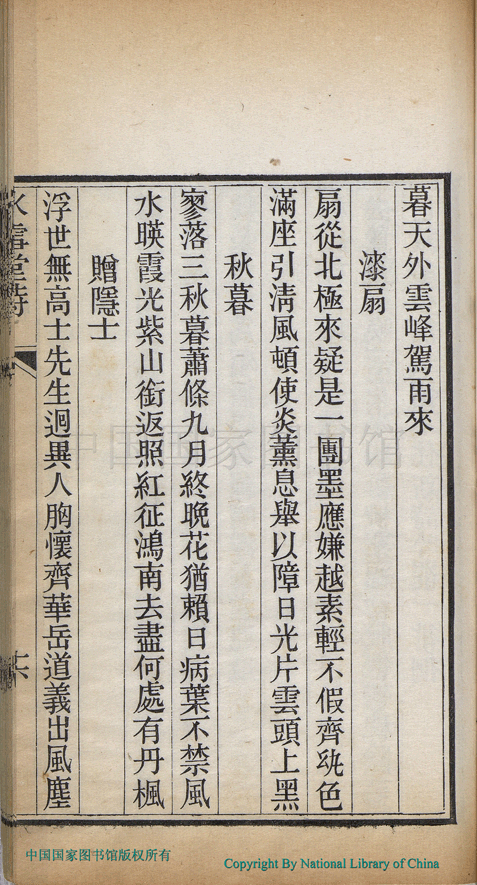 暮天外雲峰駕雨來
漆扇
扇從北極來疑是一團墨應嫌越素輕不假齊紈色
滿座引淸風頓使炎薰息舉以障日光片雲頭上黑
秋暮
寥落三秋暮蕭條九月終晚花猶賴日病葉不禁風
水暎霞光紫山銜返照紅征鴻南去盡何處有丹楓
贈隱士
浮世無高士先生迥異人胸懷齊華岳道義出風塵
中国国家图书馆
中国国家图书馆版权所有
Copyright By National Library of China